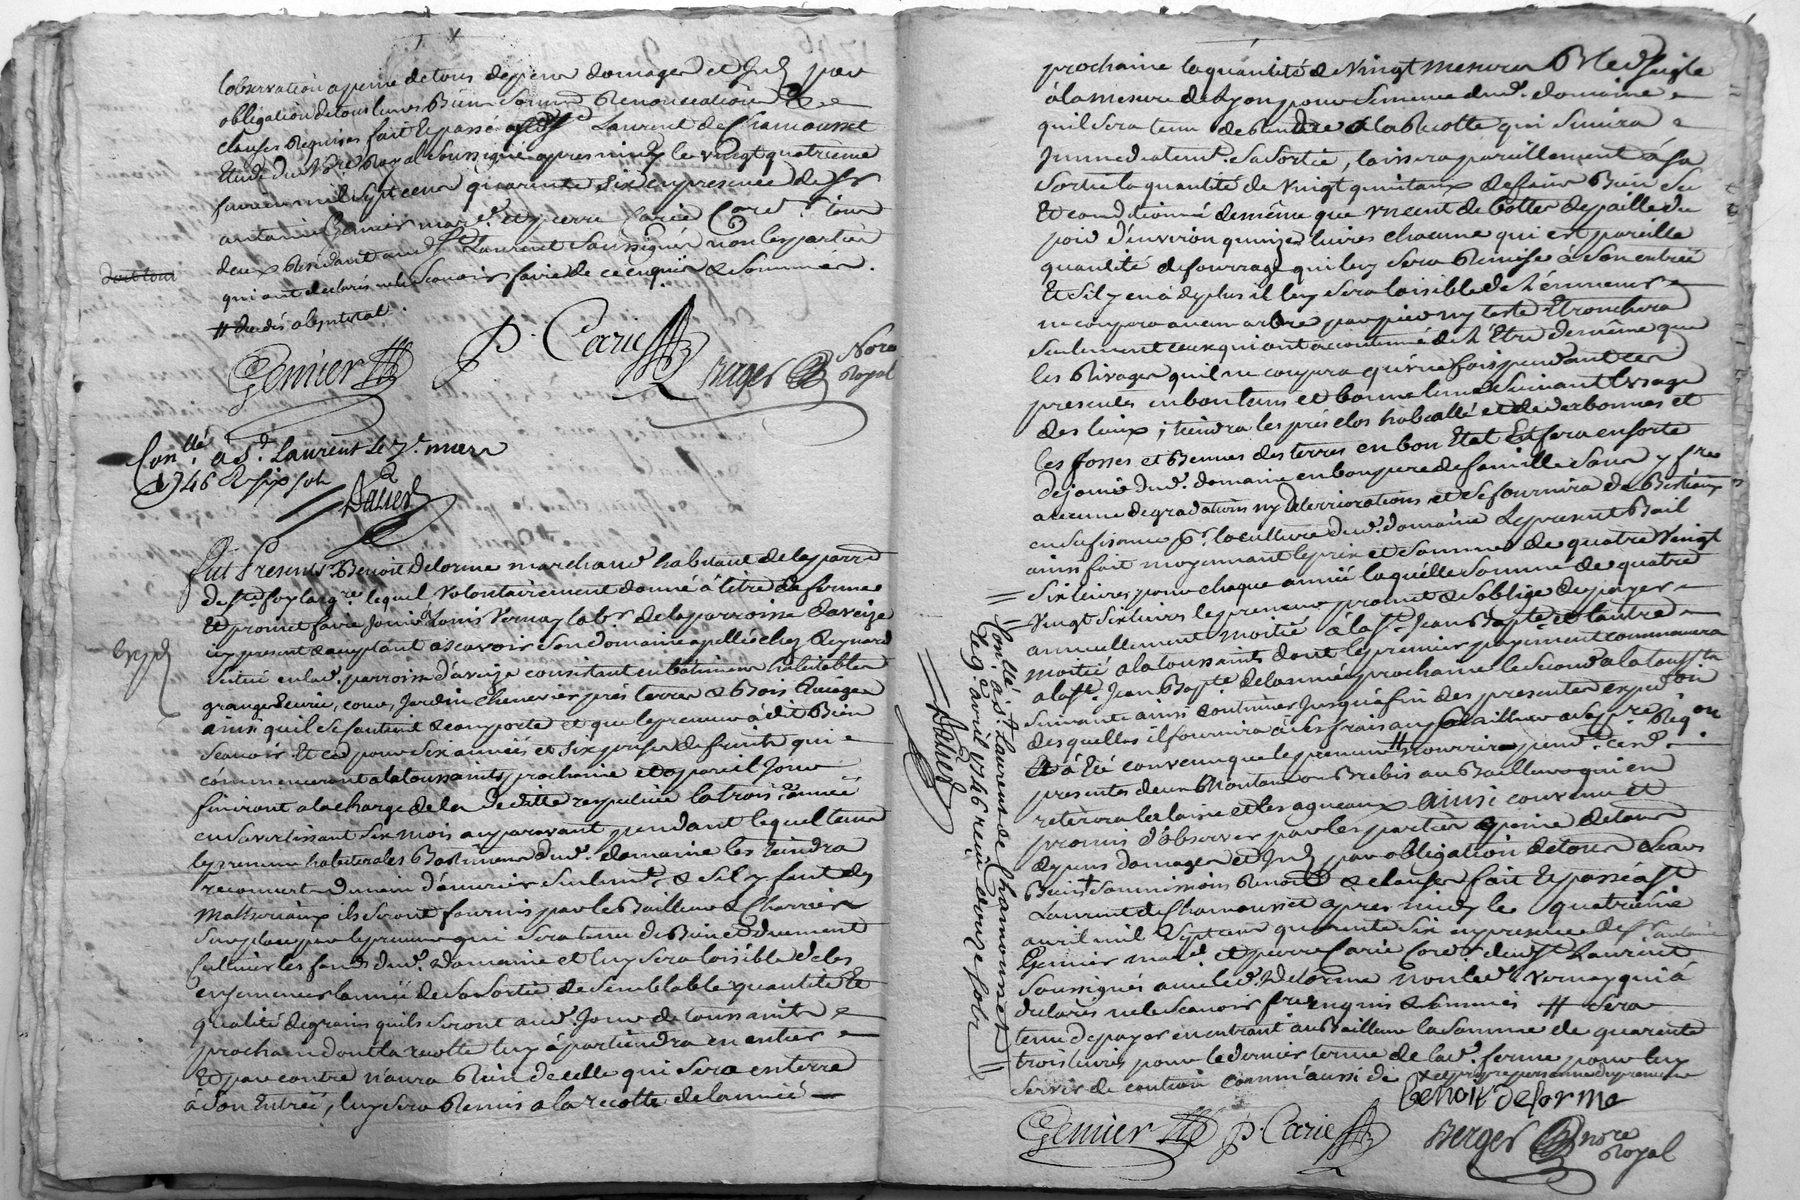 l'observation a peine de tous depens domages et Int par
obligation de tous leurs Biens Soumis Renonciations &
clauses Requises fait et passé audt St Laurent de Chamousset
Etude du Nore Royal Soussigné apres midy le vingt quatrieme
fevrier mil sept cens quarente six en presence de Sr
antoine Genier mard et pierre Carie Cord tous
deux Residant audt St Laurent Soussignés non les parties
qui ont declarés ne le Scavoir faire de ce enquis & sommés.
Genier P. Carie Berger Nore Royal
Conllé à St Laurent le 7e mars
1746 R six sols
Dauers
Fut Presents Benoit Delorme marchand habitant de la parre
de Ste foy largre lequel volontairement donne à titre de ferme
Et promet faire jouir à Louis Vernay labr de la parroisse d'aveize
icy present & acceptant ascavoir son domaine appellé chez Reynard
Expd
situé en lad. parroisse d'aveize consistant en bâtiments habitables
grange Ecurie, cour, Jardin chenevier prés terres & Bois
ainsi qu'il se contient & comporte et que le preneur à dit Bien
Scavoir Et ce pour six années et six prises de fruits qui
commenceront a la toussaints prochaine et a pareil Jour
finiront a la charge de la Reditte respective la trois.e année
en s'avertissant six mois auparavant pendant lequel tems
le preneur habitera les Bastiments dud. domaine les tiendra
recouverts de main d'ouvrier seulmt, & s'il y faut des
Matteriaux ils seront fournis par le Bailleur & Charriés
sur place par le preneur qui sera tenu de Bien et dûement
Cultiver les fonds dud. Domaine et luy sera loisible de les
ensemencer l'année de sa sortie de semblable quantité Et
qualité de grains qu'ils seront aud. Jour de toussaints
prochain dont la recolte luy apartiendra en entier
Et par contre n'aura Rien de celle qui sera en terre
à son Entrée, luy sera Remis a la recolte de l'année
prochaine la quantité de Vingt mesures Bled seigle
à la mesure de Lyon pour semence dud. domaine
qu'il sera tenu de Rendre a la Recolte qui suivra
Immediatemt. sa sortie, laissera pareillement à sa
sortie la quantité de vingt quintaux de foin Bien sec
Et conditionné de même que vncent de bottes de paille du
poid d'environ quinze livres chacune qui est pareille
quantité de fourrage qui luy sera Remise à son entrée
Et s'il y en a de plus il luy sera loisible de l'emmener
ne coupera aucun arbre par pied ny teste Et tronchera
seulement ceux qui ont accoutumé de l'Etre de même que
les Rivages qu'il ne coupera qu'vne fois pendant ces
presentes en bon tems et bonne lune suivant l'vsage
des lieux; tiendra les prés clos et de derbonnes et
les fosses et Bennes des terres en bon Etat Et fera en sorte
de jouir dud. domaine en bon pere de famille sans y fre
aucune degradations ny Deterriorations et se fournira de Bestiaux
en suffisance pr. la culture dud. domaine Le present Bail
ainsi fait moyennant le prix et somme de quatre Vingt
six livres pour chaque année laquelle somme de quatre
Vingt six livres le preneur promet & s'oblige de payer
annuellement moitié à la St Jean Bapte et l'autre
moitié a la toussaints dont le premier payement commencera
a la St. Jean Bapte de l'année prochaine le second a la toussts
suivante ainsi continuer jusqu'a fin des presentes
desquelles il fournira à ses frais au Bailleur
Et à été convenu que le preneur nourrira pendt. cesd.
presentes deux Moutons ou Brebis au Bailleur qui en
retirera la laine et les agneaux Ainsi convenu et
promis d'observer par les parties a peine de tous
depens domages et Int par obligation de tous leurs
Biens soummissions Renons & clauses fait Et passé a St
Laurent de Chamousset apres midy le quatrieme
avril mil sept cens quarente six en presence de Sr antoine
Genier mard et pierre Carie Cord dud. St Laurent
Soussignés avec led. Delorme non led. Vernay qui à
declarés ne le scavoir fre enquis & sommés # sera
tenu de payer en entrant au Bailleur la somme de quarente
trois livres pour le dernier terme de lad. ferme pour luy
servir de caution comm'aussi de
Benoit delorme
Genier P. Carie Berger Nore Royal
Conllé à St. Laurent de Chamousset
le 9e avril 1746 reçu douze sols
Dauers